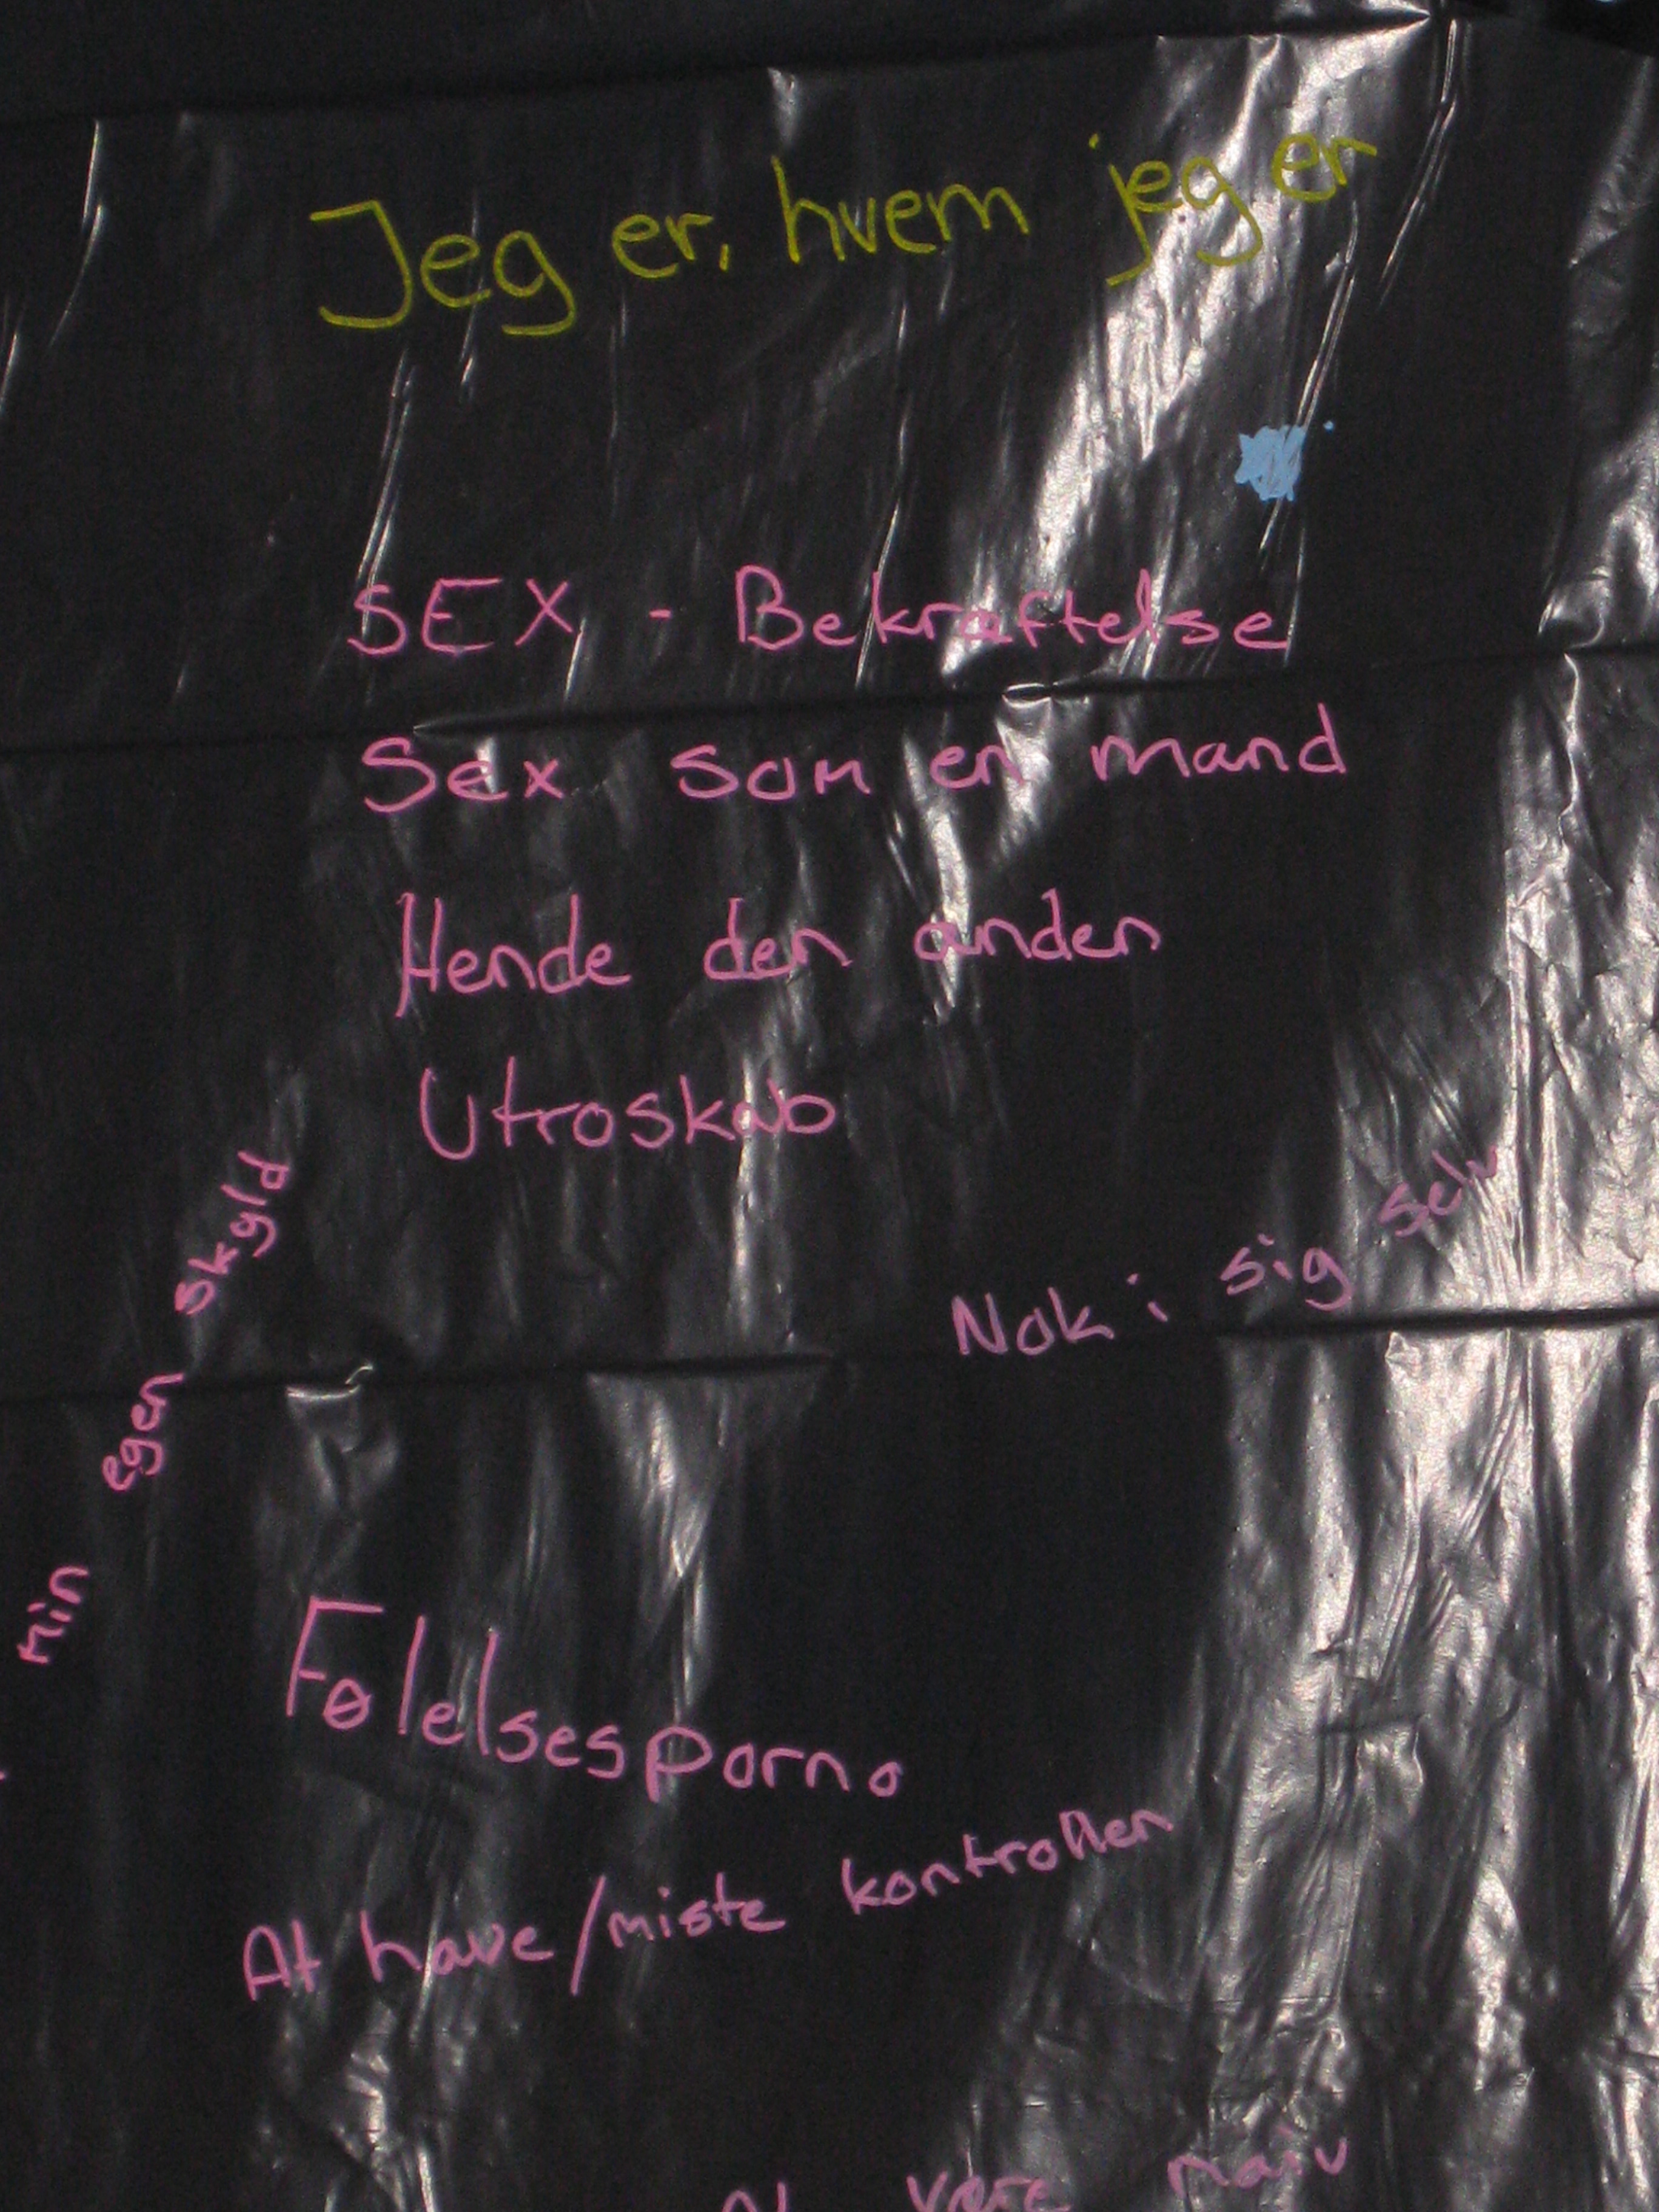 Jeg er, hvem jeg er
SEX - Bekræftelse
Sex som en mand
Hende den anden
Utroskab
Min egen skyld
Nok i sig selv
Følelsesporno
At have/miste kontrollen
At være naiv